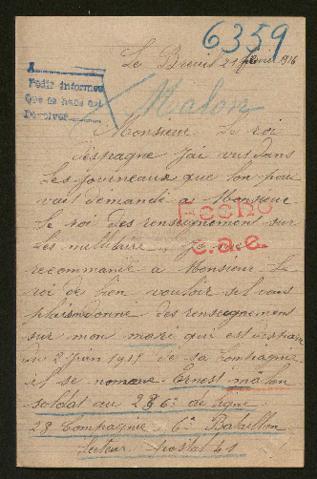 6359
Le Breuil 21 février 1916
A
Pedir informes
Que se haga est
Malon
Monsieur Le roi
d'espagne J'ai vus dans
Les journeaux que l'on pou
vait demandé a Monsieur
le roi des renseignement sur
Les militaire Je me
FECHO
c.a.e.
recommande à Monsieur Le
roi de bien vouloir sil vous
plais donné des renseignement
sur mon mari qui est disparu
2 Juin 1915 de sa compagnie
il se nomme Ernest malon
soldat au 286e de ligne
28 Compagnie 6e Bataillon
Secteur postal 41